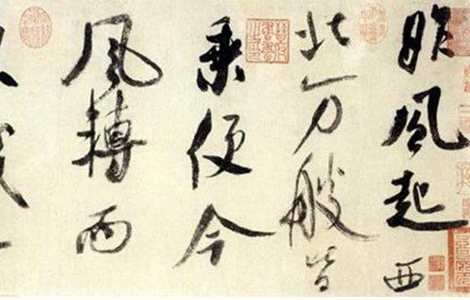 昨風起西
北万艘皆
乘便今
風轉而